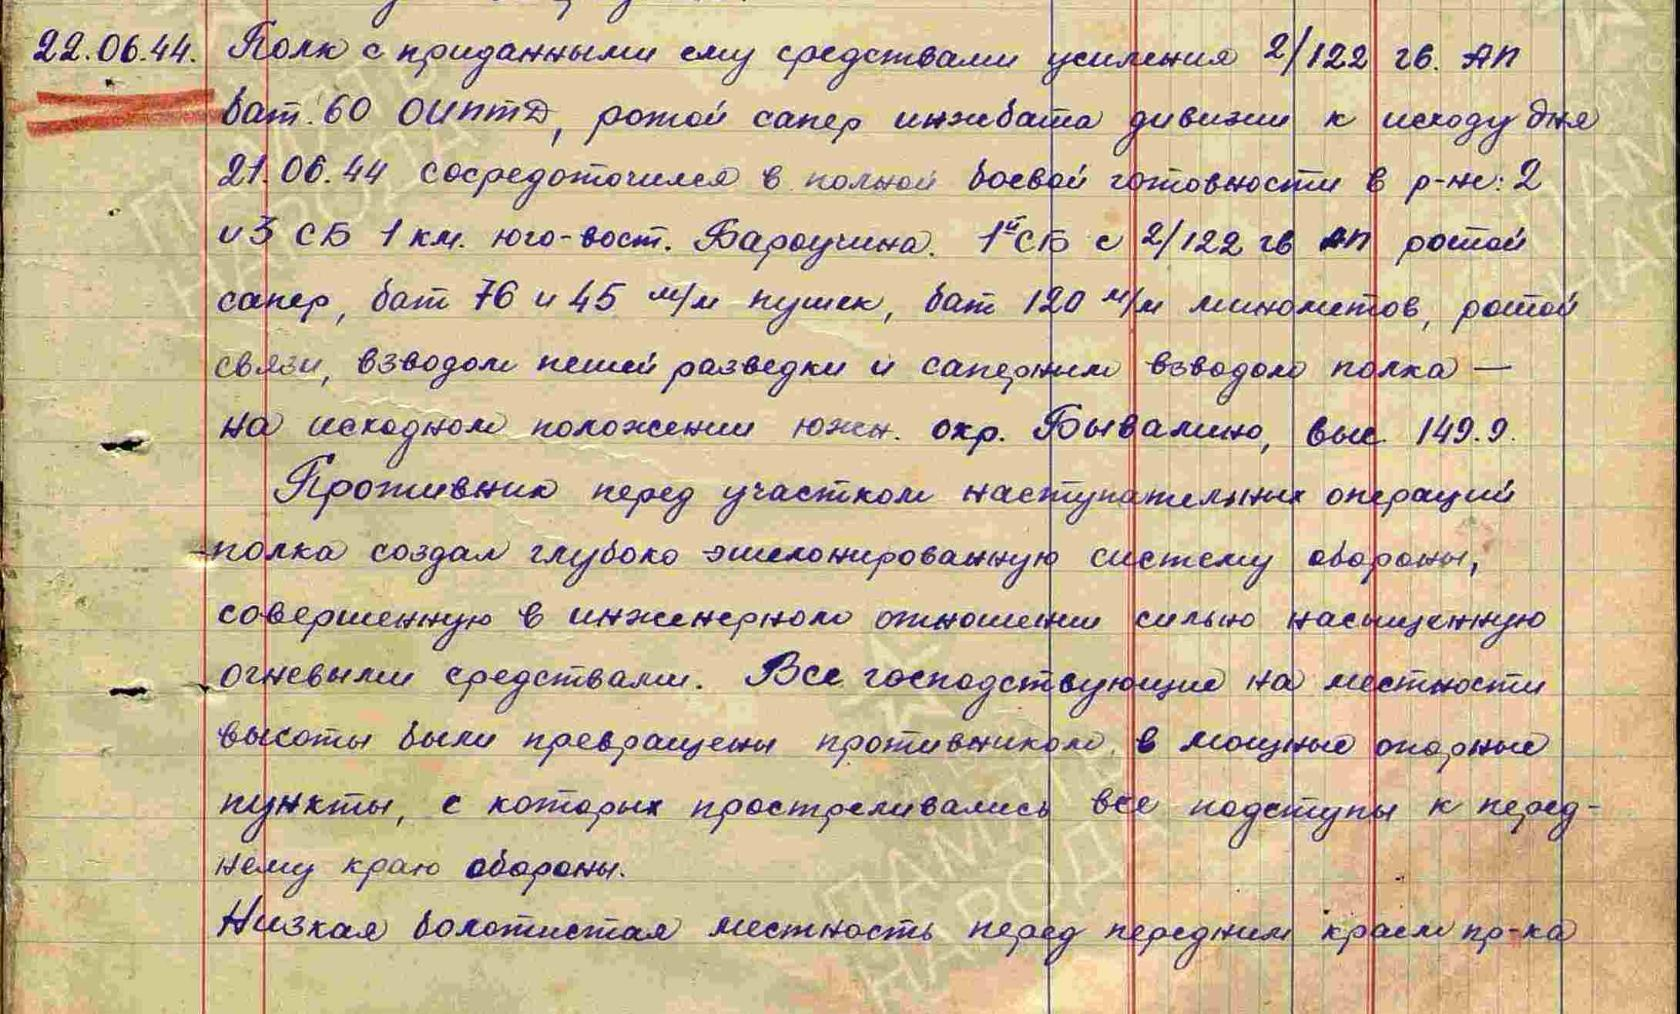 22.06.44. Полк с приданными ему средствами усиления 2/122 гв. АП
бат. 60 ОИПТД, ротой сапер инжбата дивизии к исходу дня
21.06.44 сосредоточился в полной боевой готовности в р-не: 2
и 3 СБ 1 км. юго-вост. Бароучина. 1й СБ с 2/122 гв АП ротой
сапер, бат 76 и 45 м/м пушек, бат 120 м/м минометов, ротой
связи, взводом пешей разведки и саперным взводом полка —
на исходном положении южн. окр. Бывалино, выс. 149.9.
Противник перед участком наступательных операций
полка создал глубоко эшелонированную систему обороны,
совершенную в инженерном отношении сильно насыщенную
огневыми средствами. Все господствующие на местности
высоты были превращены противником в мощные опорные
пункты, с которых простреливались все подступы к перед-
нему краю обороны.
Низкая болотистая местность перед передним краем пр-ка
ПАМЯТЬ
НАРОДА
ПАМЯТЬ
НАРОДА